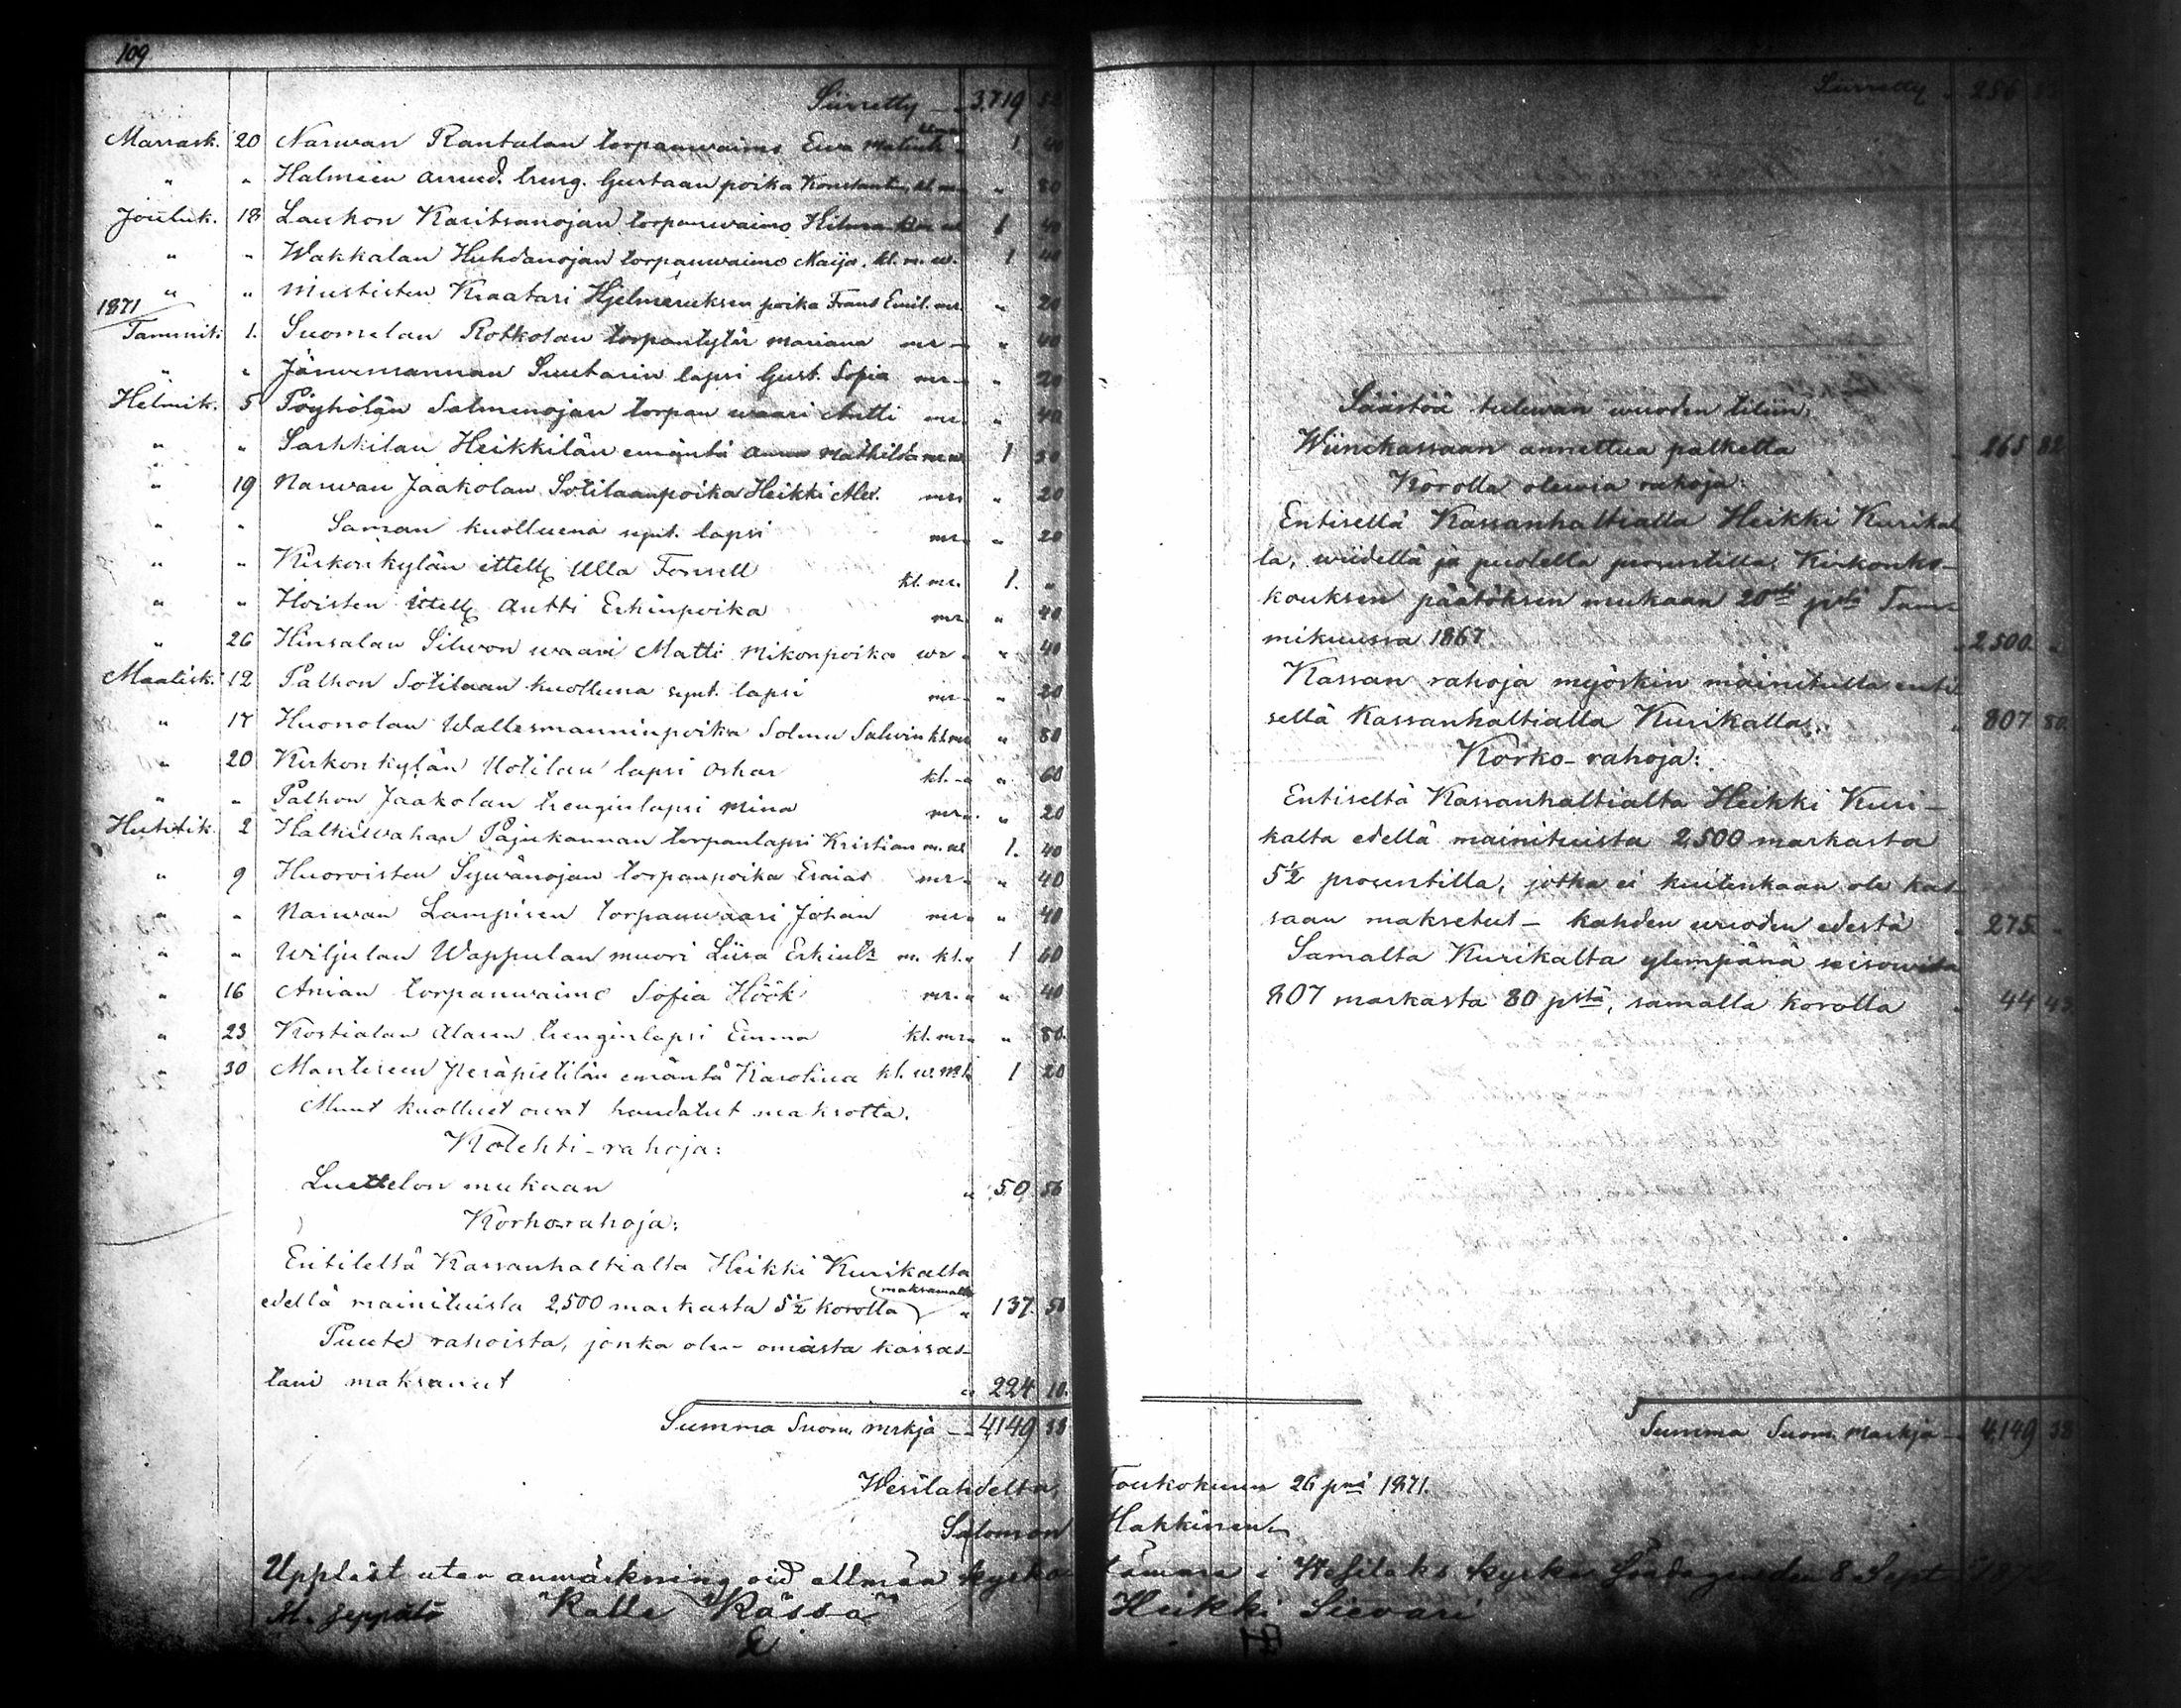 109
Siirretty — 3,719 52
Marrask. 20 Narwan Rantalan torpanwaimo Ewa " 1 40
" " Halmeen treng. Gustaan poika Konstantin, kl. mr. " 80
Jouluk. 18 Laukon Karitsanojan torpanwaimo Hilma 1 40
" " Wakkalan Huhdanojan torpanwaimo Maija. kl. m. w. 1 40
" " Mustisten Kraatari Hjelmeruksen poika Frans Emil. mr. " 20
1871
Tammik. 1. Suomelan Rotkolan torpantytär Mariana mr — " 40
" " Suutarin lapsi Gust. Sofia mr — " 20
Helmik. 5 Pöyhölän Salmenojan torpan waari Antti mr. " 40
" " Sarkkilan Heikkilän emäntä Anna Mathilda 1 50
" 19 Narwan Jaakolan Sotilaanpoika Heikki Alex. mr. " 20
" " Saman kuolluena synt. lapsi mr. " 20
" " Kirkonkylän ittell. Ulla Forsell kl. mr. 1. "
" " Hoisten ittell. Antti Erkinpoika mr. " 40
" 26 Hinsalan Silwon waari Matti Mikonpoika " 40
Maalisk. 12 Palhon Sotilaan kuolluna synt. lapsi mr — " 20
" 17 Huonolan Wallesmanninpoika Solmu Salwin kl. mr " 80
" 20 Kirkonkylän Uotilan lapsi Oskar kl. — " 60
" " Palhon Jaakolan trenginlapsi Mina mr. " 20
Huhtik. 2 Halkiwahan Pajukannan torpanlapsi Kristian 1. 40
" 9 Huorvisten Sywänojan torpanpoika Esaias mr — " 40
" " Narwan Lampisen torpanwaari Johan mr " 40
" " Wiljulan Wappulan muori Liisa m. kl. " 1 60
" 16 Anian torpanwaimo Sofia Höök mr. " " 40
" 23 Kostialan Alasen trenginlapsi Emma kl. mr. " 80.
" 30 Mantereen emäntä Karolina kl. w. 1 20
Muut kuolluet owat haudatut maksotta.
Kolehti-rahoja:
Luettelon mukaan " 50 56
Korkorahoja:
Entiseltä Kassanhaltialta Heikki Kurikalta
edellä mainituista 2,500 markasta 5½ korolla (maksamatta) " 137 50
Puute rahoista, jonka olen omasta kassas-
tani maksanut " 224 10.
Summa Suom. mrkja — 4,149 38
Siirretty " 256
Säästöä tulewan wuoden tiliin,
Wiinckassaan annettua palketta " 265 82
Korolla olewia rahoja:
Entisellä Kassanhaltialla Heikki Kurikal
la, wiidellä ja puolella prosentilla, Kirkonko-
kouksen päätöksen mukaan 20tä ptä Tam-
mikuussa 1867. " 2,500. "
Kassan rahoja myöskin mainitulla enti
sellä Kassanhaltialla Kurikalla, " 807 80.
Korko-rahoja:
Entiseltä Kassanhaltialta Heikki Kuri-
kalta edellä mainituista 2,500 markasta
5½ prosentilla, jotka ei kuitenkaan ole kas-
saan maksetut — kahden wuoden edestä " 275. "
Samalta Kurikalta ylempänä seisowista
807 markasta 80 pstä, samalla korolla " 44 43.
Summa Suom. Markja — 4,149 38
Wesilahdella, Toukokuun 26 pnä 1871.
Salomon Hakkinen
Uppläst utan anmärkning vid allmän kyrko stämma i Wesilaks kyrka Söndagen den 8 Sept
M. Seppälä Kalle Kässä Heikki Sievari